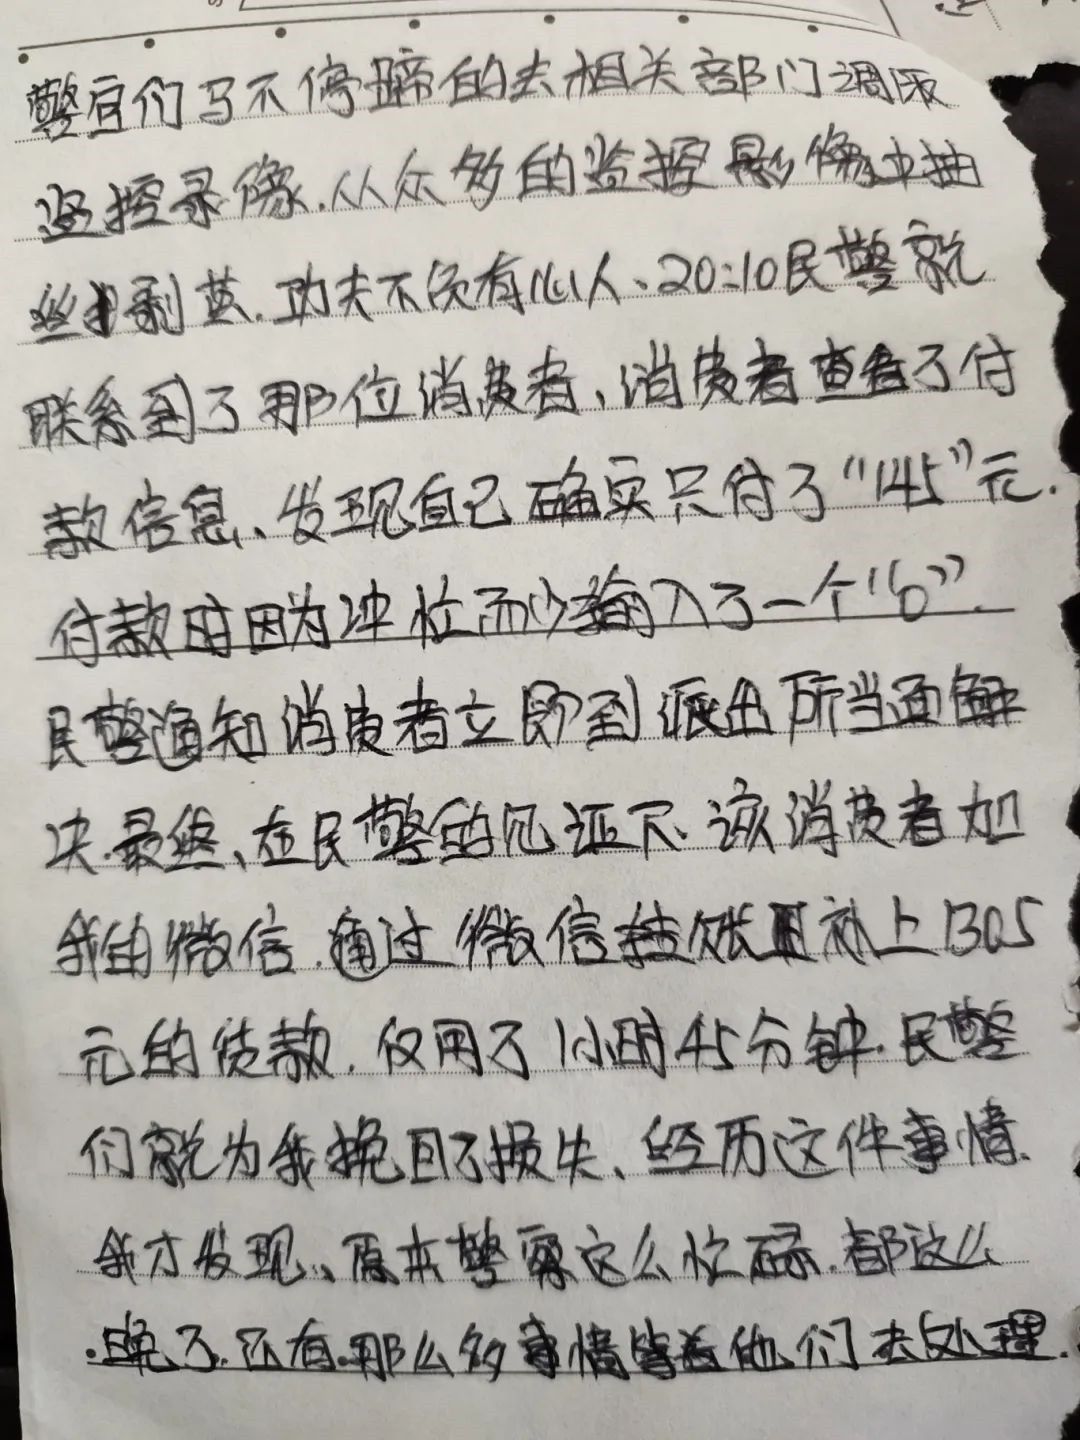 警官们马不停蹄的去相关部门调取
监控录像.从众多的监控影像中抽
丝剥茧.功夫不负有心人、20:10民警就
联系到了那位消费者,消费者查看了付
款信息、发现自己确实只付了“145”元.
付款时因为冲忙而少输入了一个“0”.
民警通知消费者立即到派出所当面解
决.最终、在民警的见证下.该消费者加
我的微信.通过微信转账补上1305
元的货款.仅用了1小时45分钟.民警
们就为我挽回了损失、经历这件事情.
我才发现、原来警察这么忙碌.都这么
晚了.还有.那么多事情等着他们去处理.